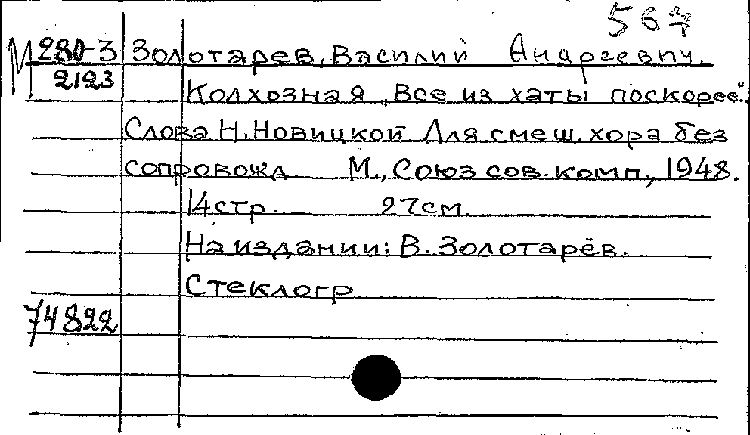 567
М 280-3 Золотарев, Василий Андреевич.
2123
Колхозная „Все из хаты поскорее".
Слова Н. Новицкой Для смеш. хора без
сопровожд М., Союз сов. комп., 1948.
14 стр. 27 см.
На издании: В. Золотарёв.
Стеклогр
74822